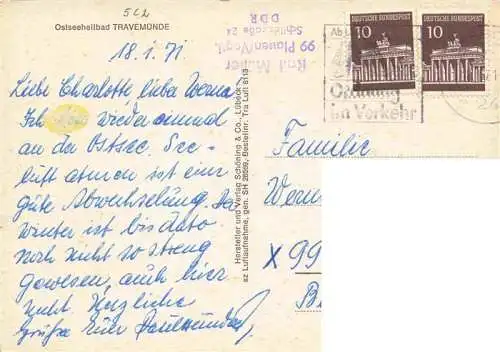 502
Ostseeheilbad TRAVEMÜNDE
18.1.71
Liebe Charlotte lieber Werner
Ich wieder einmal
an der Ostsee. See-
luft atmen ist eine
gute Abwechselung. Der
Winter ist bis dato
noch nicht so streng
gewesen, auch hier
nicht. Herzliche
Grüße Euer
Hersteller und Verlag Schöning & Co., Lübeck
sz Luftaufnahme, gen. SH 26099, Bestellnr. Tra Luft 8113
Karl Müller
99 Plauen/Vogtl.
DDR
DEUTSCHE BUNDESPOST
10
DEUTSCHE BUNDESPOST
10
Ordnung
im Verkehr
Familie
Wern
X 99